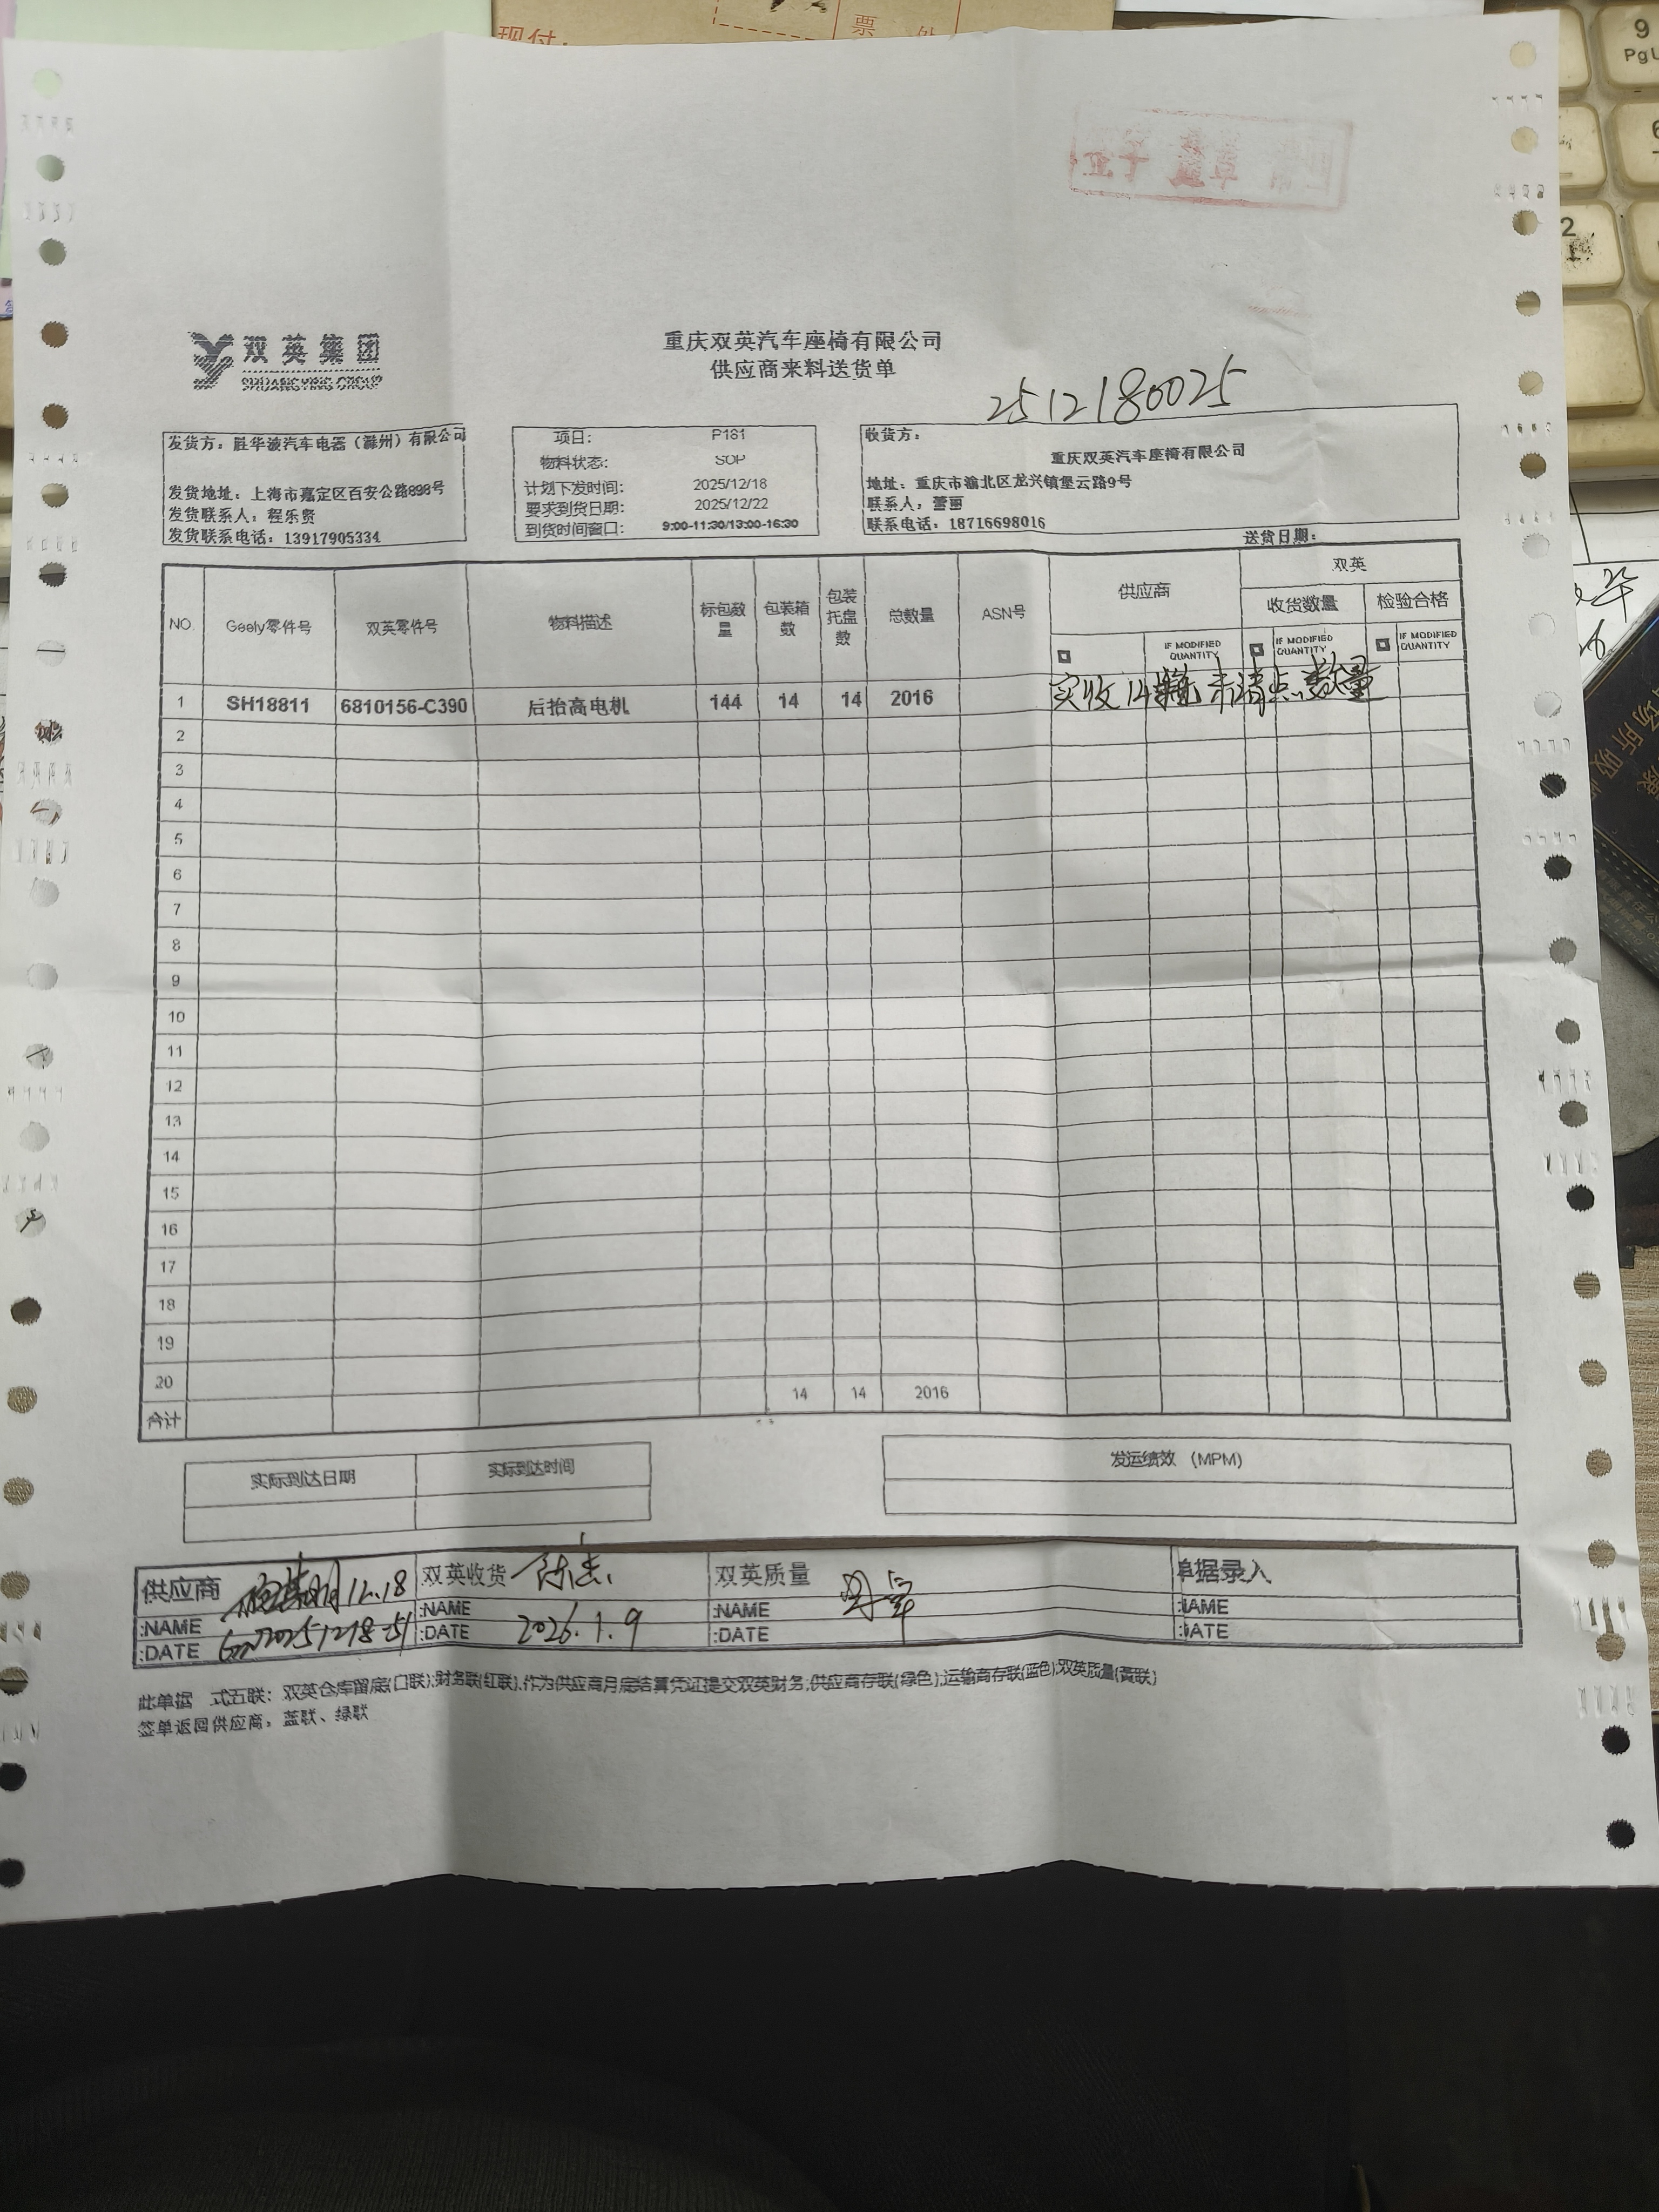 现付:
票
9
PgU
2
双英集团
SHUANGYING GROUP
重庆双英汽车座椅有限公司
供应商来料送货单
2512180025
发货方：胜华波汽车电器（滁州）有限公司
发货地址：上海市嘉定区百安公路898号
发货联系人：程乐贤
发货联系电话：13917905334
项目： P181
物料状态： SOP
计划下发时间： 2025/12/18
要求到货日期： 2025/12/22
到货时间窗口： 9:00-11:30/13:00-16:30
收货方：
重庆双英汽车座椅有限公司
地址：重庆市渝北区龙兴镇堡云路9号
联系人：雷丽
联系电话：18716698016
送货日期：
NO. Geely零件号 双英零件号 物料描述 标包数量 包装箱数 包装托盘数 总数量 ASN号 供应商 双英
收货数量 检验合格
IF MODIFIED QUANTITY IF MODIFIED QUANTITY IF MODIFIED QUANTITY
1 SH18811 6810156-C390 后抬高电机 144 14 14 2016 实收14箱 未清点数量
2
3
4
5
6
7
8
9
10
11
12
13
14
15
16
17
18
19
20
合计 14 14 2016
实际到达日期 实际到达时间
发运绩效 (MPM)
供应商 12.18 双英收货 陈杰 双英质量 单据录入
:NAME :NAME :NAME :NAME
:DATE :DATE 2026.1.9 :DATE :DATE
此单据 式五联：双英仓库留底(门联);财务联(红联),作为供应商月底结算凭证提交双英财务;供应商存联(绿色);运输商存联(蓝色);双英质量(黄联)
签单返回供应商，蓝联、绿联